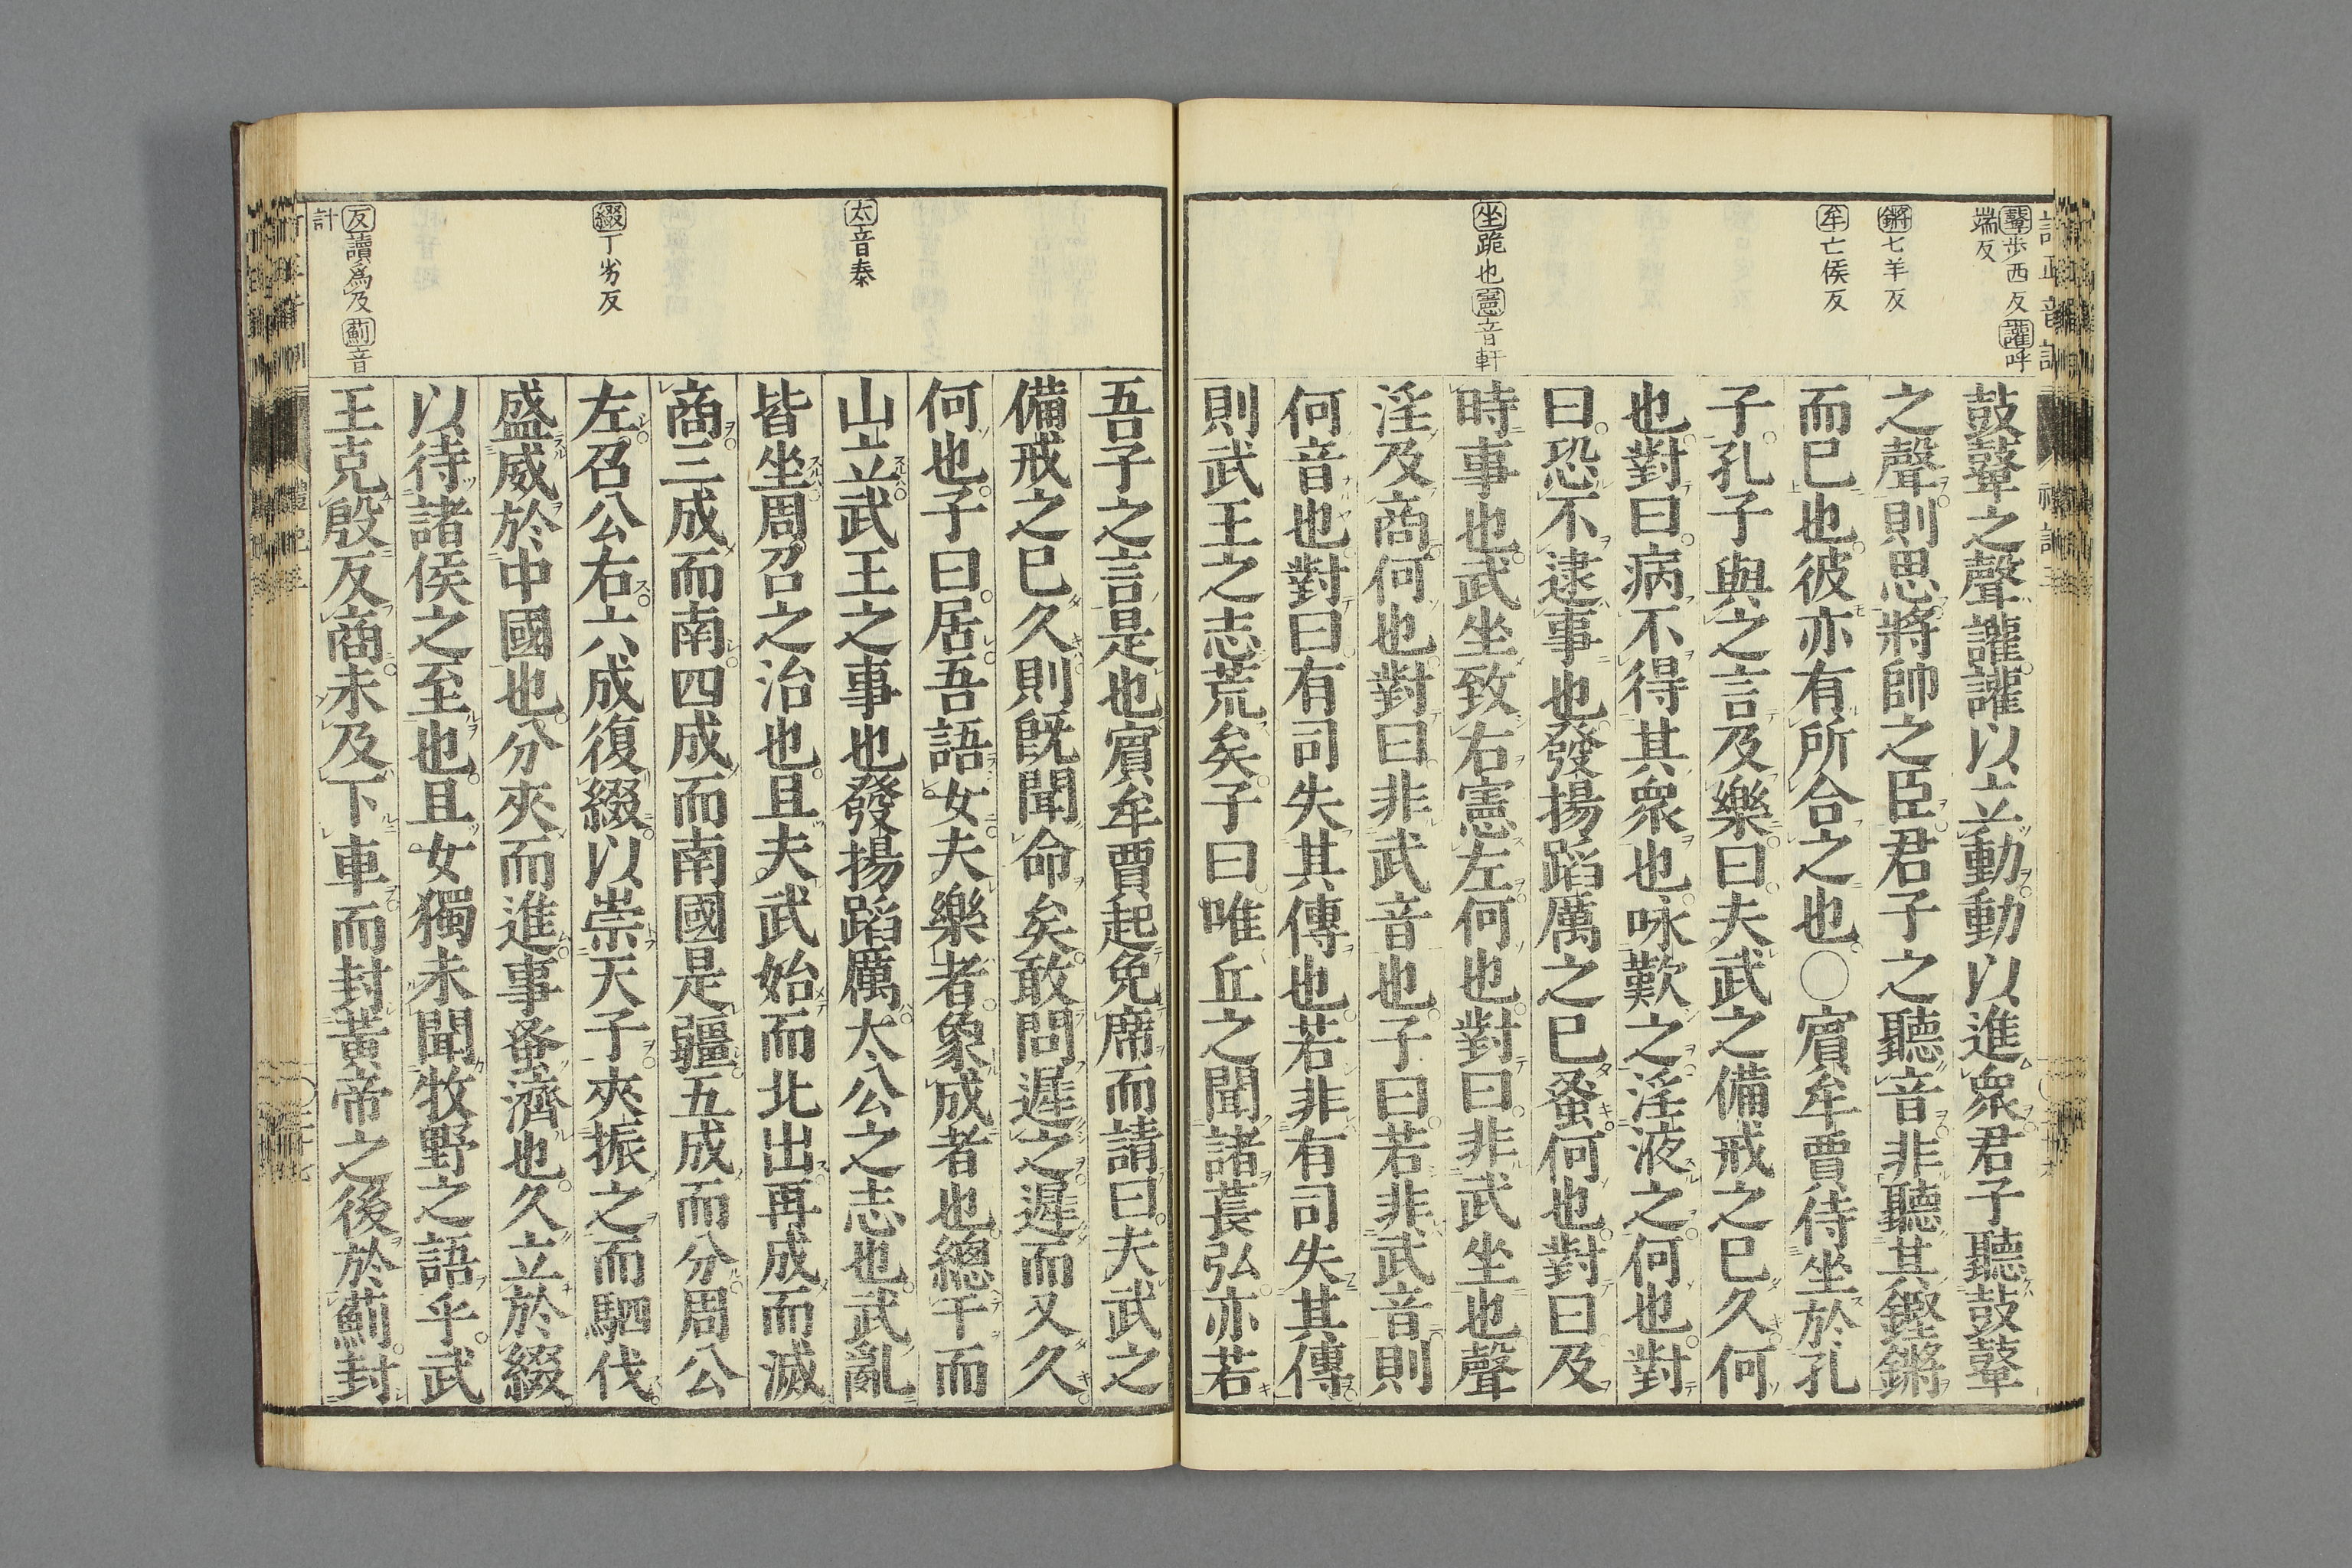 鼙步西反讙呼
端反
鏘七羊反
牟亡侯反
坐跪也憲音軒
鼓鼙之聲讙讙以立動動以進衆君子聽鼓鼙
之聲則思將帥之臣君子之聽音非聽其鏗鏘
而已也彼亦有所合之也○賓牟賈侍坐於孔
子孔子與之言及樂曰夫武之備戒之已久何
也對曰病不得其衆也咏歎之淫液之何也對
曰恐不逮事也發揚蹈厲之已蚤何也對曰及
時事也武坐致右憲左何也對曰非武坐也聲
淫及商何也對曰非武音也子曰若非武音則
何音也對曰有司失其傳也若非有司失其傳
則武王之志荒矣子曰唯丘之聞諸萇弘亦若
太音泰
綴丁劣反
反讀為及薊音
計
吾子之言是也賓牟賈起免席而請曰夫武之
備戒之已久則旣聞命矣敢問遲之遲而又久
何也子曰居吾語女夫樂者象成者也緫干而
山立武王之事也發揚蹈厲太公之志也武亂
皆坐周召之治也且夫武始而北出再成而滅
商三成而南四成而南國是疆五成而分周公
左召公右六成復綴以崇天子夾振之而駟伐
盛威於中國也分夾而進事蚤濟也久立於綴
以待諸侯之至也且女獨未聞牧野之語乎武
王克殷反商未及下車而封黃帝之後於薊封